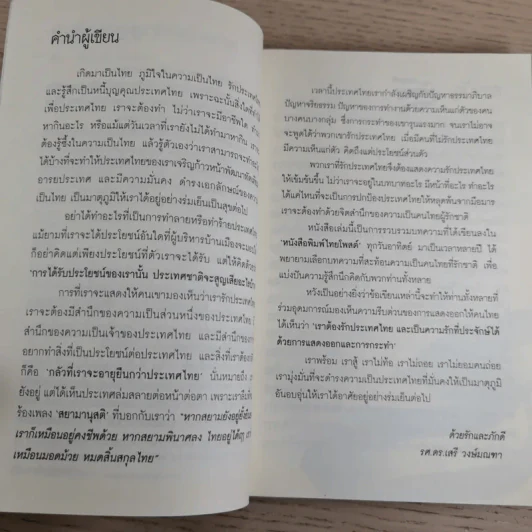 คำนำผู้เขียน
เกิดมาเป็นไทย ภูมิใจในความเป็นไทย รักประเทศไทย
และรู้สึกเป็นหนี้บุญคุณประเทศไทย เพราะฉะนั้นสิ่งใดที่ทำ
เพื่อประเทศไทย เราจะต้องทำ ไม่ว่าเราจะมีอาชีพใด
หากินอะไร หรือแม้แต่วันเวลาที่เรายังไม่ได้ทำมาหากิน
ต้องรู้ซึ้งในความเป็นไทย แล้วรู้ตัวเองว่าเราสามารถจะทำอะไร
ได้บ้างที่จะทำให้ประเทศไทยของเราเจริญก้าวหน้าพัฒนา
อารยประเทศ และมีความมั่นคง ดำรงเอกลักษณ์ของความ
เป็นไทย เป็นมาตุภูมิให้เราได้อยู่อย่างร่มเย็นเป็นสุขต่อไป
อย่าได้ทำอะไรที่เป็นการทำลายหรือทำร้ายประเทศไทย
แม้ยามที่เราจะได้ประโยชน์อันใดที่ผู้บริหารบ้านเมืองจะมอบ
ก็อย่าคิดแต่เพียงประโยชน์ที่ตัวเราจะได้ แต่ให้คิดด้วยว่า
'การได้รับประโยชน์ของเรานั้น ประเทศชาติจะสูญเสียอะไร
การที่เราจะแสดงให้คนเขามองเห็นว่าเรารักประเทศไทย
เราจะต้องมีสำนึกของความเป็นส่วนหนึ่งของประเทศไทย
สำนึกของความเป็นเจ้าของประเทศไทย และมีสำนึกของ
อยากทำสิ่งที่เป็นประโยชน์ต่อประเทศไทย และสิ่งที่เราต้อง
ก็คือ 'กลัวที่เราจะอายุยืนกว่าประเทศไทย' นั่นหมายถึง
ยังอยู่ แต่ได้เห็นประเทศล่มสลายต่อหน้าต่อตา เพราะเรา
ร้องเพลง 'สยามานุสติ' ที่บอกกับเราว่า "หากสยามยังอยู่ยั้งยืนยง
เราก็เหมือนอยู่คงชีพด้วย หากสยามพินาศลง ไทยอยู่ได้ฤา
เหมือนมอดม้วย หมดสิ้นสกุลไทย"
เวลานี้ประเทศไทยเรากำลังเผชิญกับปัญหาธรรมาภิบาล
ปัญหาจริยธรรม ปัญหาของการทำงานด้วยความเห็นแก่ตัวของคน
บางคนบางกลุ่ม ซึ่งการกระทำของเขารุนแรงมาก จนเราไม่อาจ
จะพูดได้ว่าพวกเขารักประเทศไทย เมื่อมีคนที่ไม่รักประเทศไทย
มีความเห็นแก่ตัว คิดถึงแต่ประโยชน์ส่วนตัว
พวกเราที่รักประเทศไทยจึงต้องแสดงความรักประเทศไทย
ให้เข้มข้นขึ้น ไม่ว่าเราจะอยู่ในบทบาทอะไร มีหน้าที่อะไร ทำอะไร
ได้แค่ไหนที่จะเป็นการปกป้องประเทศไทยให้หลุดพ้นจากมือมาร
เราจะต้องทำด้วยจิตสำนึกของความเป็นคนไทยผู้รักชาติ
หนังสือเล่มนี้เป็นการรวบรวมบทความที่ได้เขียนลงใน
'หนังสือพิมพ์ไทยโพสต์' ทุกวันอาทิตย์ มาเป็นเวลาหลายปี ได้
พยายามเลือกบทความที่สะท้อนความเป็นคนไทยที่รักชาติ เพื่อ
แบ่งปันความรู้สึกนึกคิดกับพวกท่านทั้งหลาย
หวังเป็นอย่างยิ่งว่าข้อเขียนเหล่านี้จะทำให้ท่านทั้งหลายที่
ร่วมอุดมการณ์มองเห็นความรีบด่วนของการแสดงออกให้คนไทย
ได้เห็นว่า 'เราต้องรักประเทศไทย และเป็นความรักที่ประจักษ์ได้
ด้วยการแสดงออกและการกระทำ'
เราพร้อม เราสู้ เราไม่ท้อ เราไม่ถอย เราไม่ยอมคนถ่อย
เรามุ่งมั่นที่จะดำรงความเป็นประเทศไทยที่มั่นคงให้เป็นมาตุภูมิ
อันอบอุ่นให้เราได้อาศัยอยู่อย่างร่มเย็นต่อไป
ด้วยรักและภักดี
รศ.ดร.เสรี วงษ์มณฑา